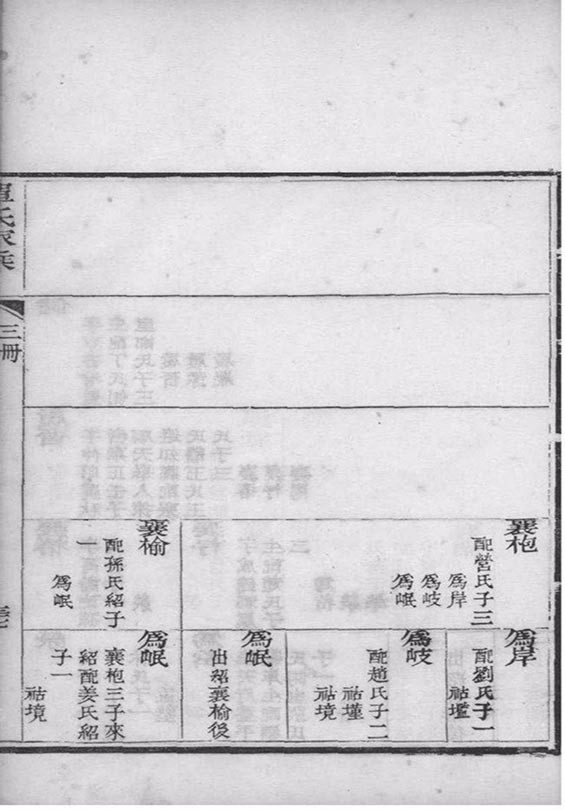 襄枹
配營氏子三
爲岸
爲岐
爲岷
襄榆
配孫氏紹子
一
爲岷
爲岸
配劉氏子一
祐壏
爲岐
配趙氏子二
祐墐
祐境
爲岷
出紹襄榆後
爲岷
襄枹三子來
紹配姜氏紹
子一
祐境
單氏家乘
三冊